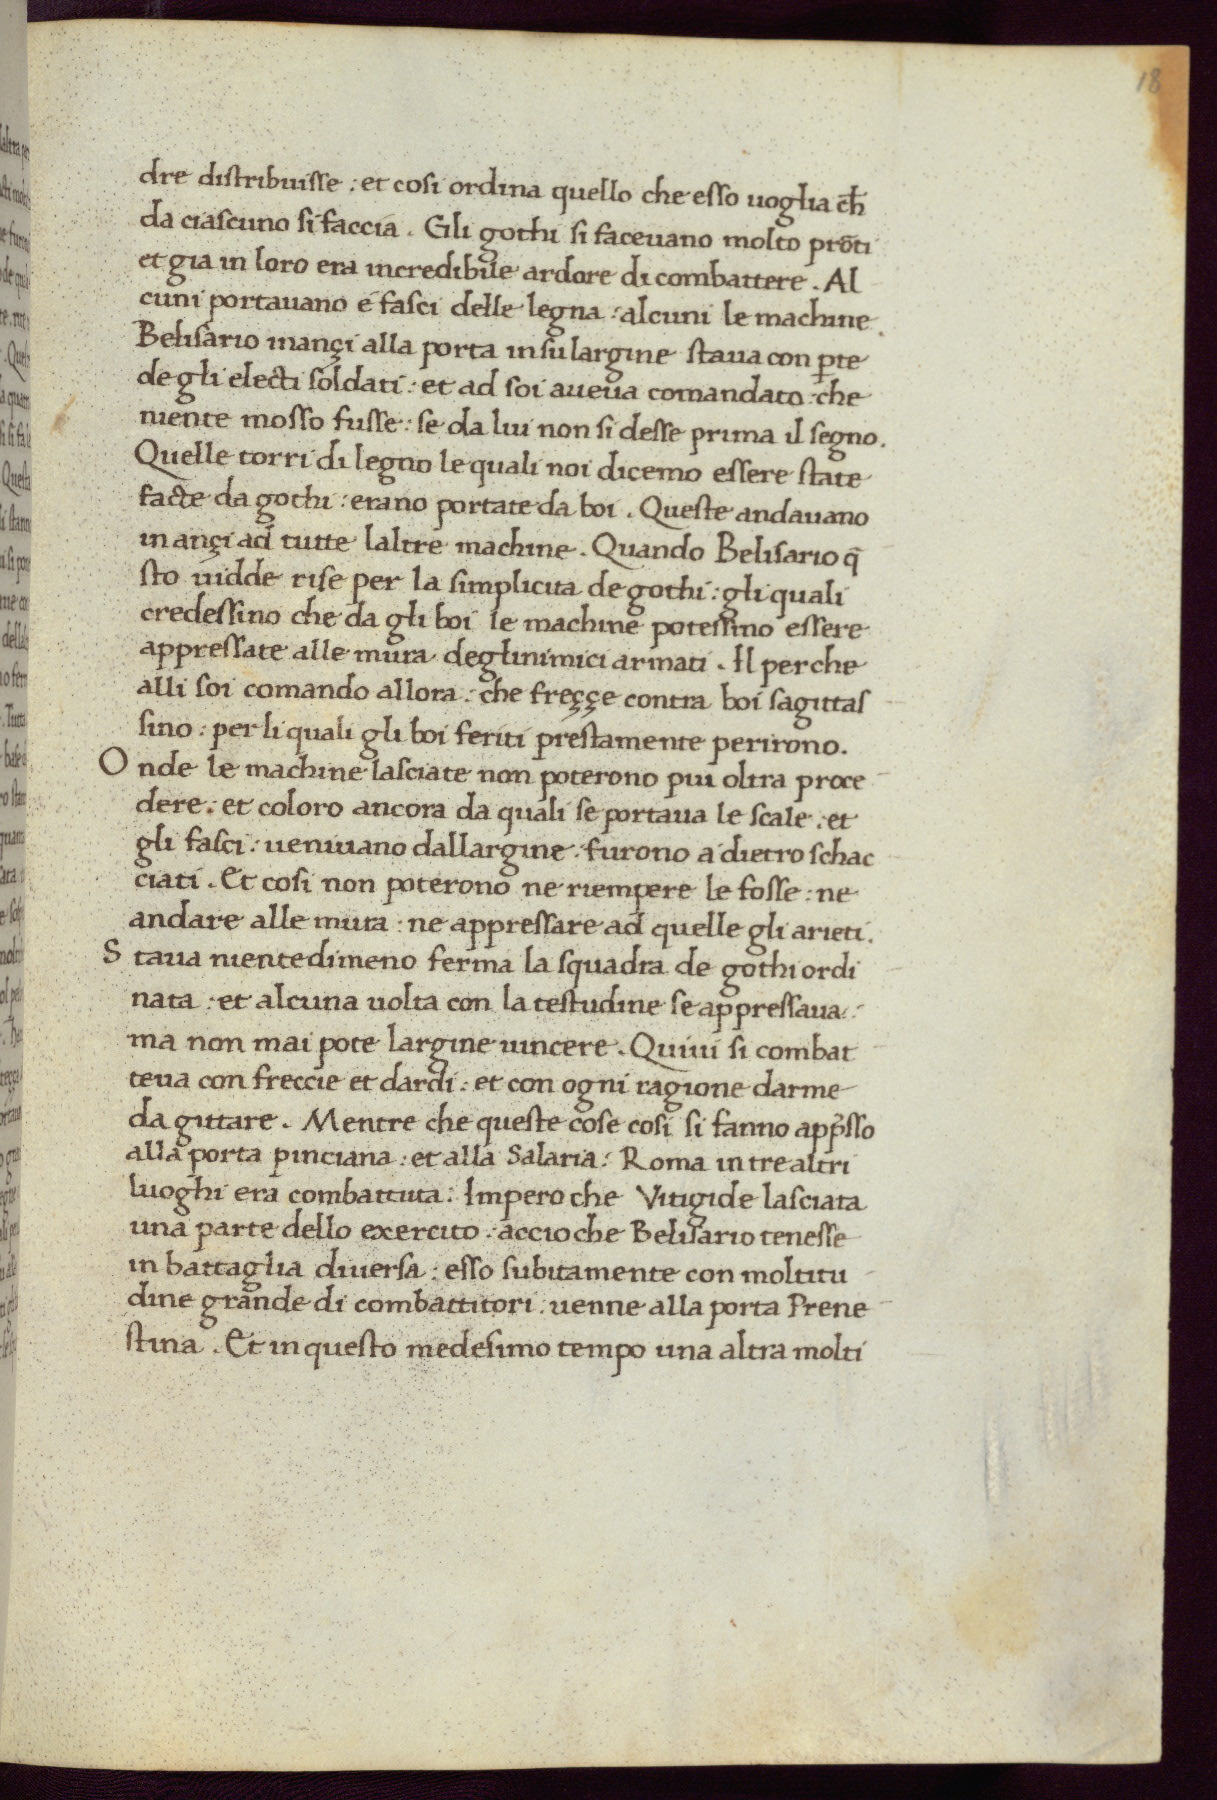 18
dre distribuisse : et cosi ordina quello che esso uoglia ch̄
da ciascuno si faccia . Gli gothi si faceuano molto prōti
et gia in loro era incredibile ardore di combattere . Al
cuni portauano e fasci delle legna : alcuni le machine .
Belisario inançi alla porta in su largine staua con ꝑte
de gli electi soldati : et ad soi aueua comandato : che
niente mosso fusse : se da lui non si desse prima il segno .
Quelle torri di legno le quali noi dicemo essere state
facte da gothi : erano portate da boi . Queste andauano
inançi ad tutte laltre machine . Quando Belisario q̄
sto uidde rise per la simplicita de gothi : gli quali
credessino che da gli boi le machine potessino essere
appressate alle mura deglinimici armati . Il perche
alli soi comando allora : che freççe contra boi sagittas
sino : per li quali gli boi feriti prestamente perirono .
Onde le machine lasciate non poterono piu oltra proce
dere : et coloro ancora da quali se portaua le scale : et
gli fasci : ueniuano dallargine : furono a dietro schac
ciati . Et cosi non poterono ne riempere le fosse : ne
andare alle mura : ne appressare ad quelle gli arieti .
Staua nientedimeno ferma la squadra de gothi ordi
nata : et alcuna uolta con la testudine se appressaua :
ma non mai pote largine uincere . Quiui si combat
teua con freccie et dardi : et con ogni ragione darme
da gittare . Mentre che queste cose cosi si fanno app̄sso
alla porta pinciana : et alla Salaria : Roma in tre altri
luoghi era combattuta : Impero che Vitigide lasciata
una parte dello exercito : accio che Belisario tenesse
in battaglia diuersa : esso subitamente con moltitu
dine grande di combattitori . uenne alla porta Prene
stina . Et in questo medesimo tempo una altra molti